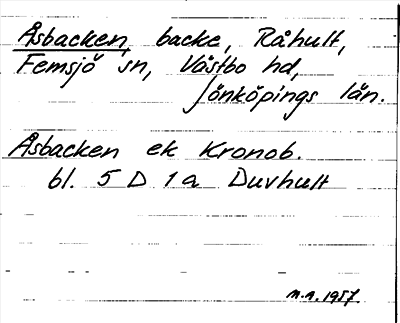 Åsbacken, backe, Råhult,
Femsjö sn, Västbo hd,
Jönköpings län.
Åsbacken ek Kronob.
bl. 5 D 1 a Duvhult
n.a. 1957